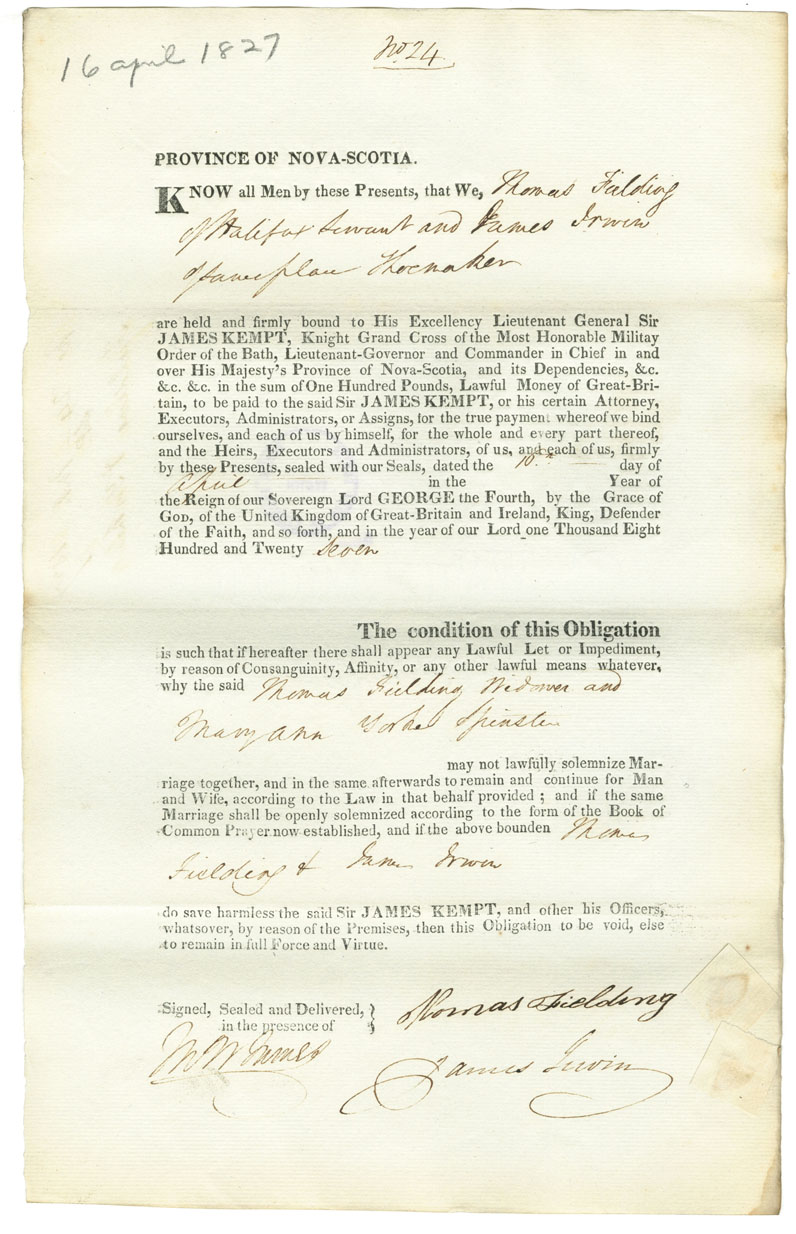 16 april 1827
No. 24.
PROVINCE OF NOVA-SCOTIA.
KNOW all Men by these Presents, that We, Thomas Fielding
of Halifax Servant and James Irwin
of same place Shoemaker
are held and firmly bound to His Excellency Lieutenant General Sir
JAMES KEMPT, Knight Grand Cross of the Most Honorable Militay
Order of the Bath, Lieutenant-Governor and Commander in Chief in and
over His Majesty's Province of Nova-Scotia, and its Dependencies, &c.
&c. &c. in the sum of One Hundred Pounds, Lawful Money of Great-Bri-
tain, to be paid to the said Sir JAMES KEMPT, or his certain Attorney,
Executors, Administrators, or Assigns, for the true payment whereof we bind
ourselves, and each of us by himself, for the whole and every part thereof,
and the Heirs, Executors and Administrators, of us, and each of us, firmly
by these Presents, sealed with our Seals, dated the day of
April in the Year of
the Reign of our Sovereign Lord GEORGE the Fourth, by the Grace of
GOD, of the United Kingdom of Great-Britain and Ireland, King, Defender
of the Faith, and so forth, and in the year of our Lord one Thousand Eight
Hundred and Twenty Seven
The condition of this Obligation
is such that if hereafter there shall appear any Lawful Let or Impediment,
by reason of Consanguinity, Affinity, or any other lawful means whatever,
why the said Thomas Fielding Widower and
Mary Ann Spinster
may not lawfully solemnize Mar-
riage together, and in the same afterwards to remain and continue for Man
and Wife, according to the Law in that behalf provided ; and if the same
Marriage shall be openly solemnized according to the form of the Book of
Common Prayer now established, and if the above bounden Thomas
Fielding & James Irwin
do save harmless the said Sir JAMES KEMPT, and other his Officers,
whatsover, by reason of the Premises, then this Obligation to be void, else
to remain in full Force and Virtue.
Signed, Sealed and Delivered, }
in the presence of
Thomas Fielding
James Irwin